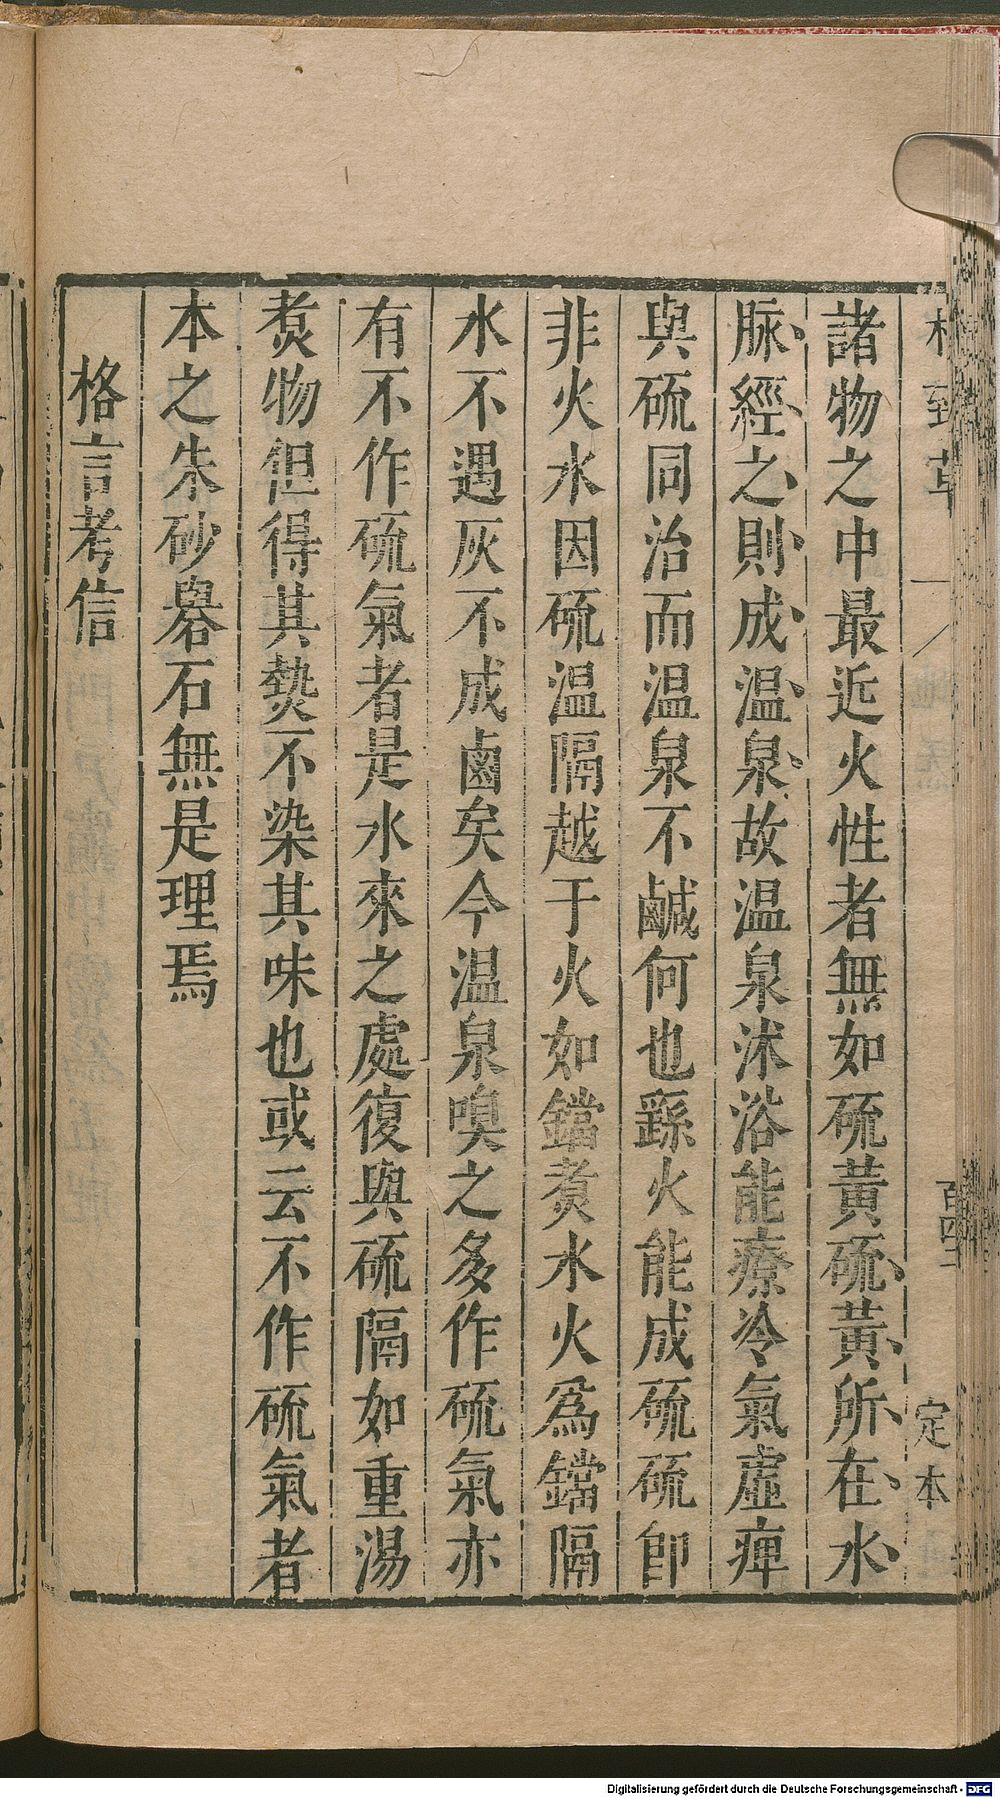 格致草
百四二
定本
諸物之中最近火性者無如硫黃硫黃所在水
脉經之則成温泉故温泉沐浴能療冷氣虛痺
與硫同治而温泉不鹹何也繇火能成硫硫卽
非火水因硫温隔越于火如鐺煑水火爲鐺隔
水不遇灰不成鹵矣今温泉嗅之多作硫氣亦
有不作硫氣者是水來之處復與硫隔如重湯
煑物但得其𤍠不染其味也或云不作硫氣者
本之朱砂礜石無是理焉
格言考信
Digitalisierung gefördert durch die Deutsche Forschungsgemeinschaft - DFG